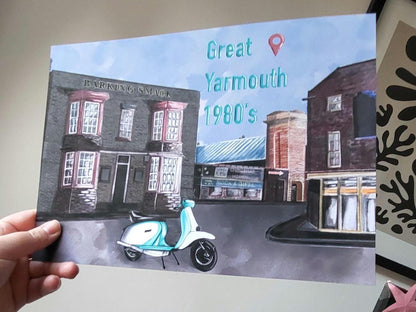 Great
Yarmouth
1980's
BARKING SMACK